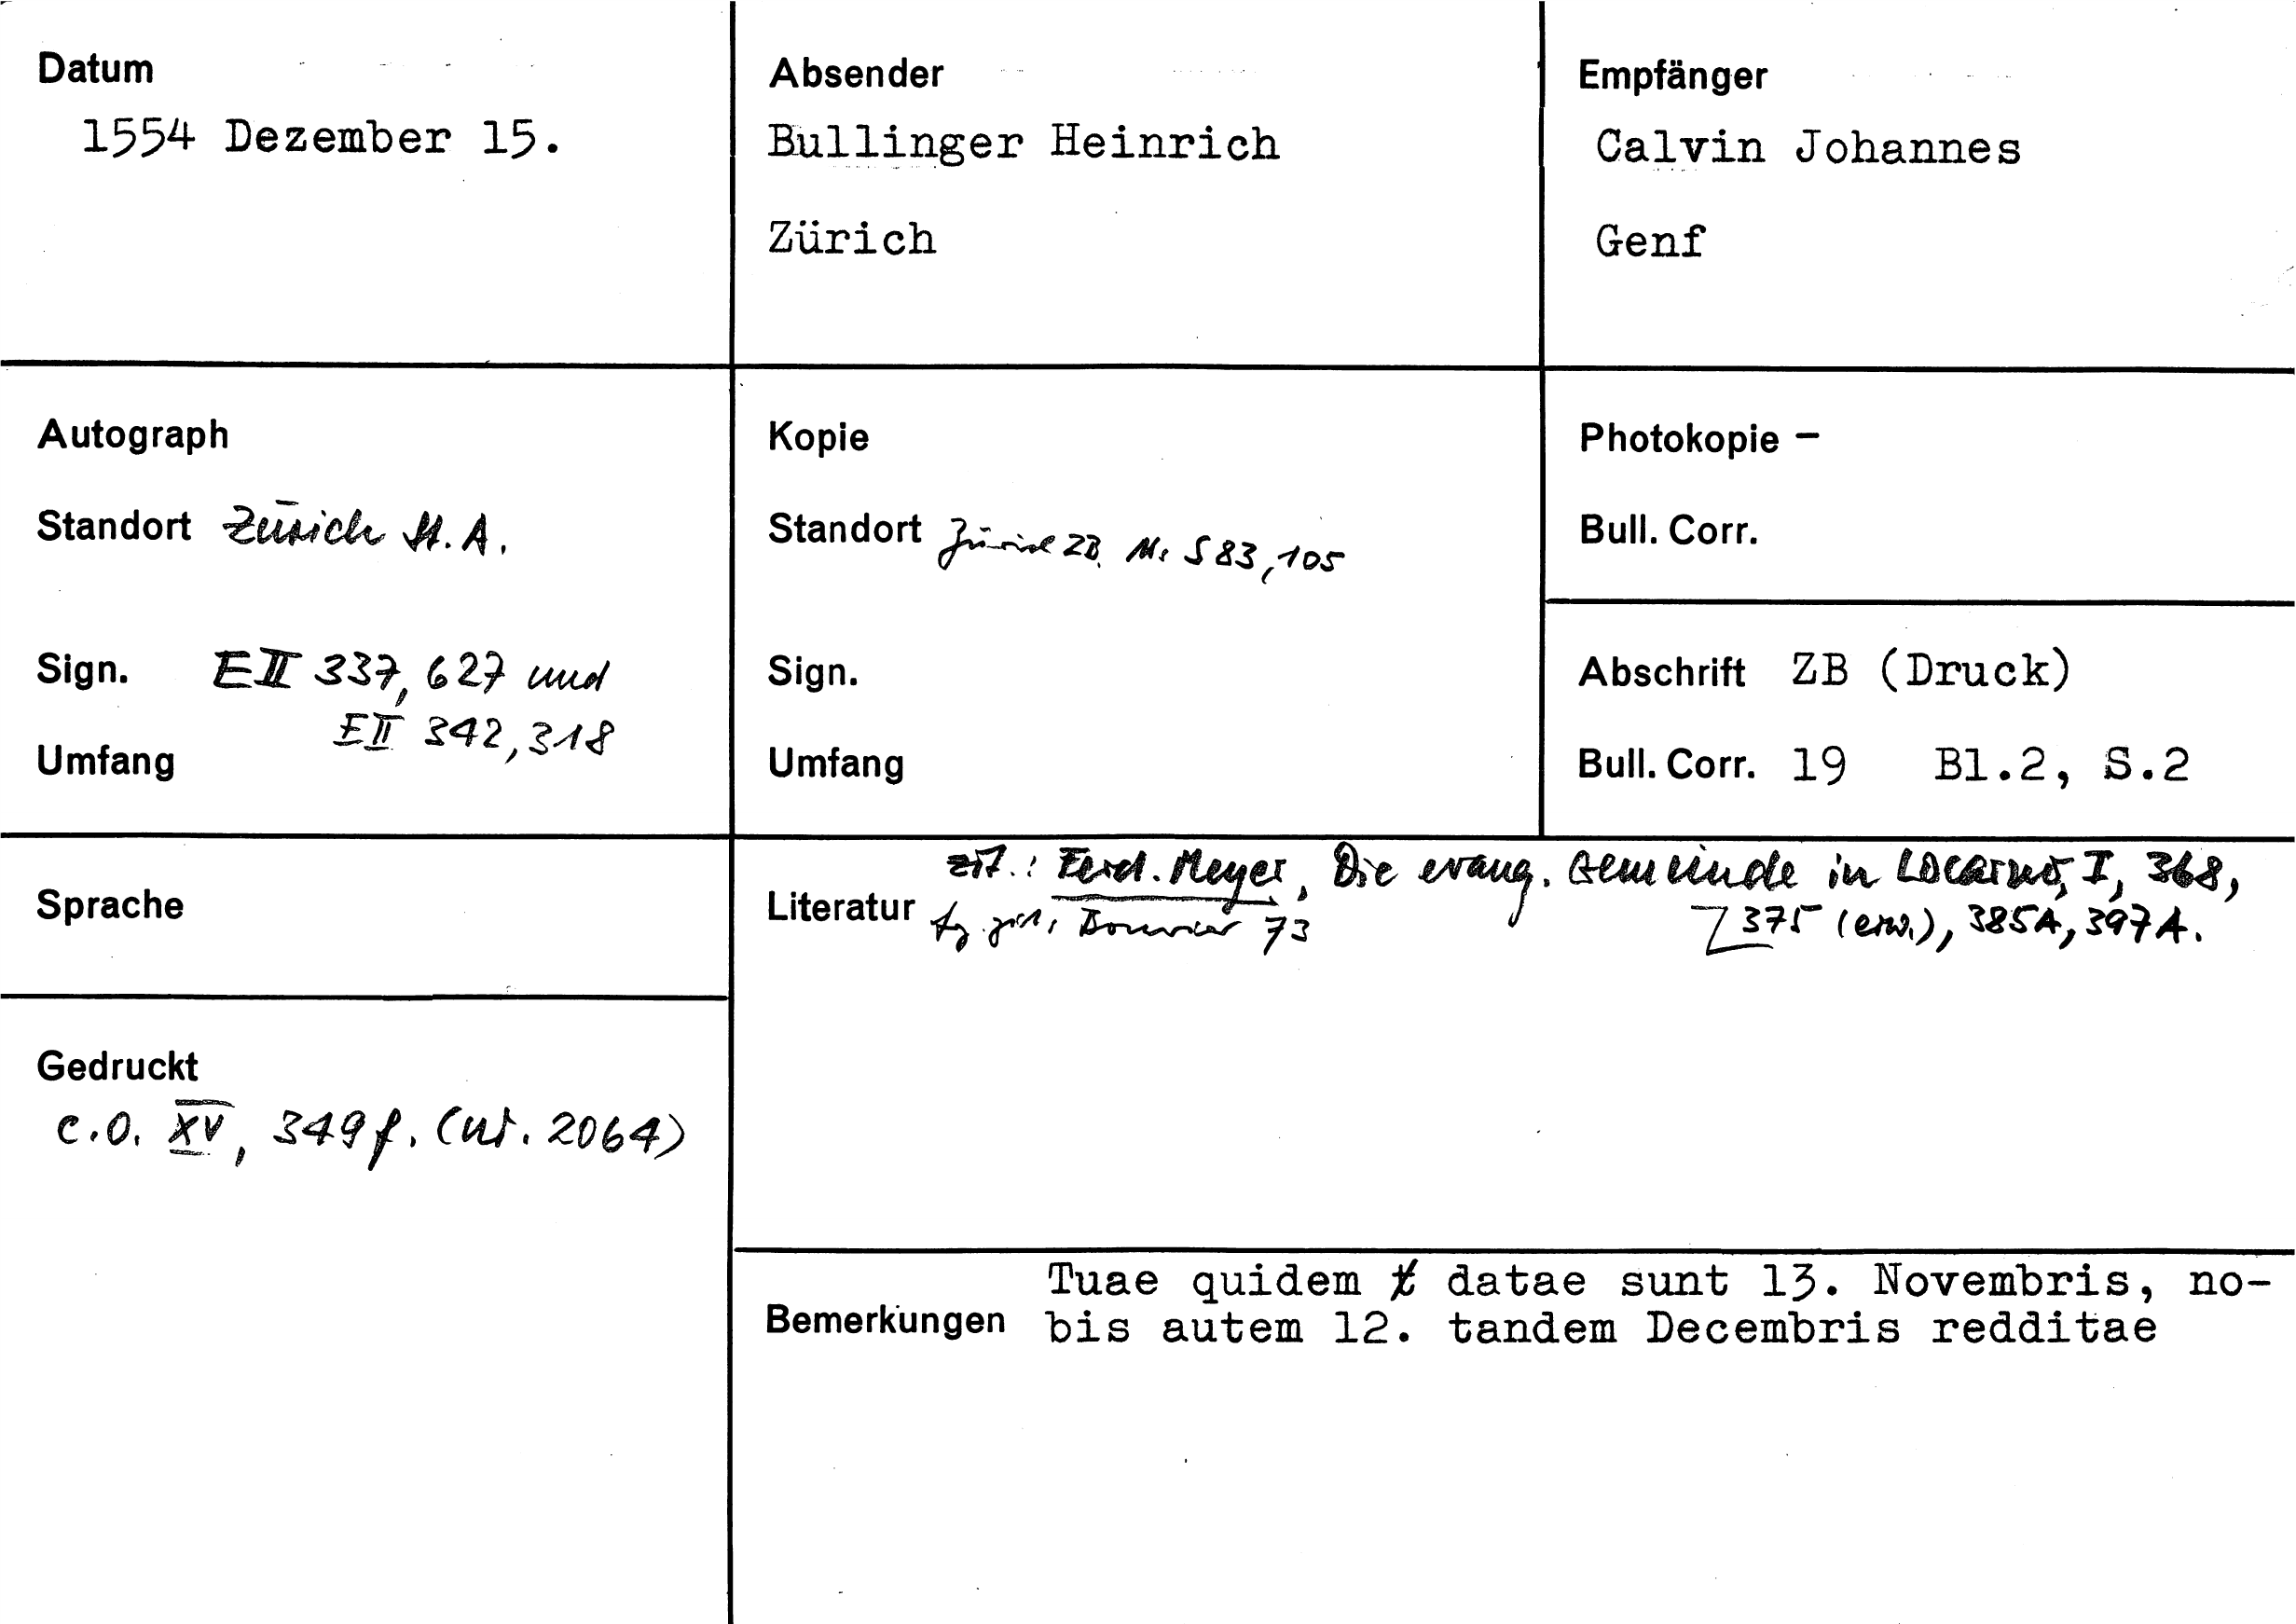 Datum
1554 Dezember 15.
Absender
Bullinger Heinrich
Zürich
Empfänger
Calvin Johannes
Genf
Autograph
Standort Zürich St. A.
Sign. E II 337, 627 und
E II 342, 318
Umfang
Kopie
Standort Zürich ZB. Ms S 83, 105
Sign.
Umfang
Photokopie –
Bull. Corr.
Abschrift ZB (Druck)
Bull. Corr. 19 Bl.2, S.2
Sprache
Gedruckt
C.O. XV, 349 f. (Nr. 2064)
Literatur zit.: Ferd. Meyer, Die evang. Gemeinde in Locarno, I, 368,
375 (erw.), 385A, 397A.
Bouvier 73
Bemerkungen Tuae quidem datae sunt 13. Novembris, no-
bis autem 12. tandem Decembris redditae